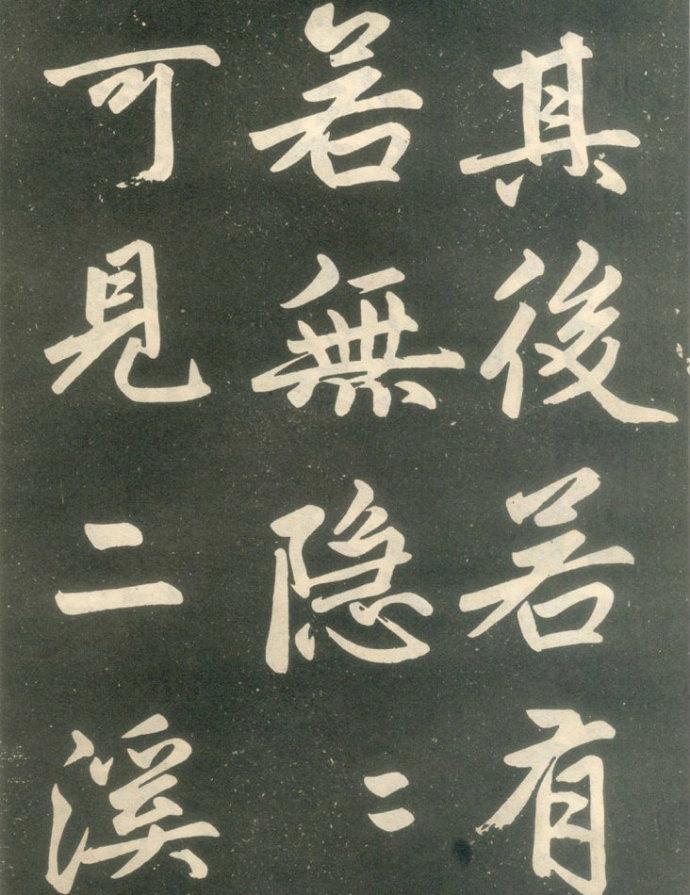 其後若有
若無隐〻
可見二溪